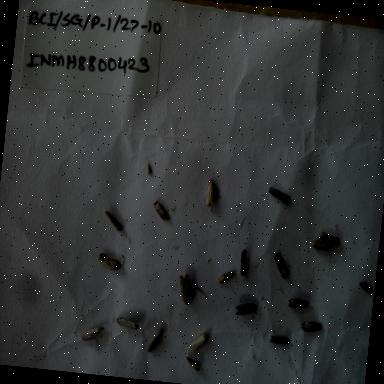 BCI/SG/P-1/27-10
INMH8800423